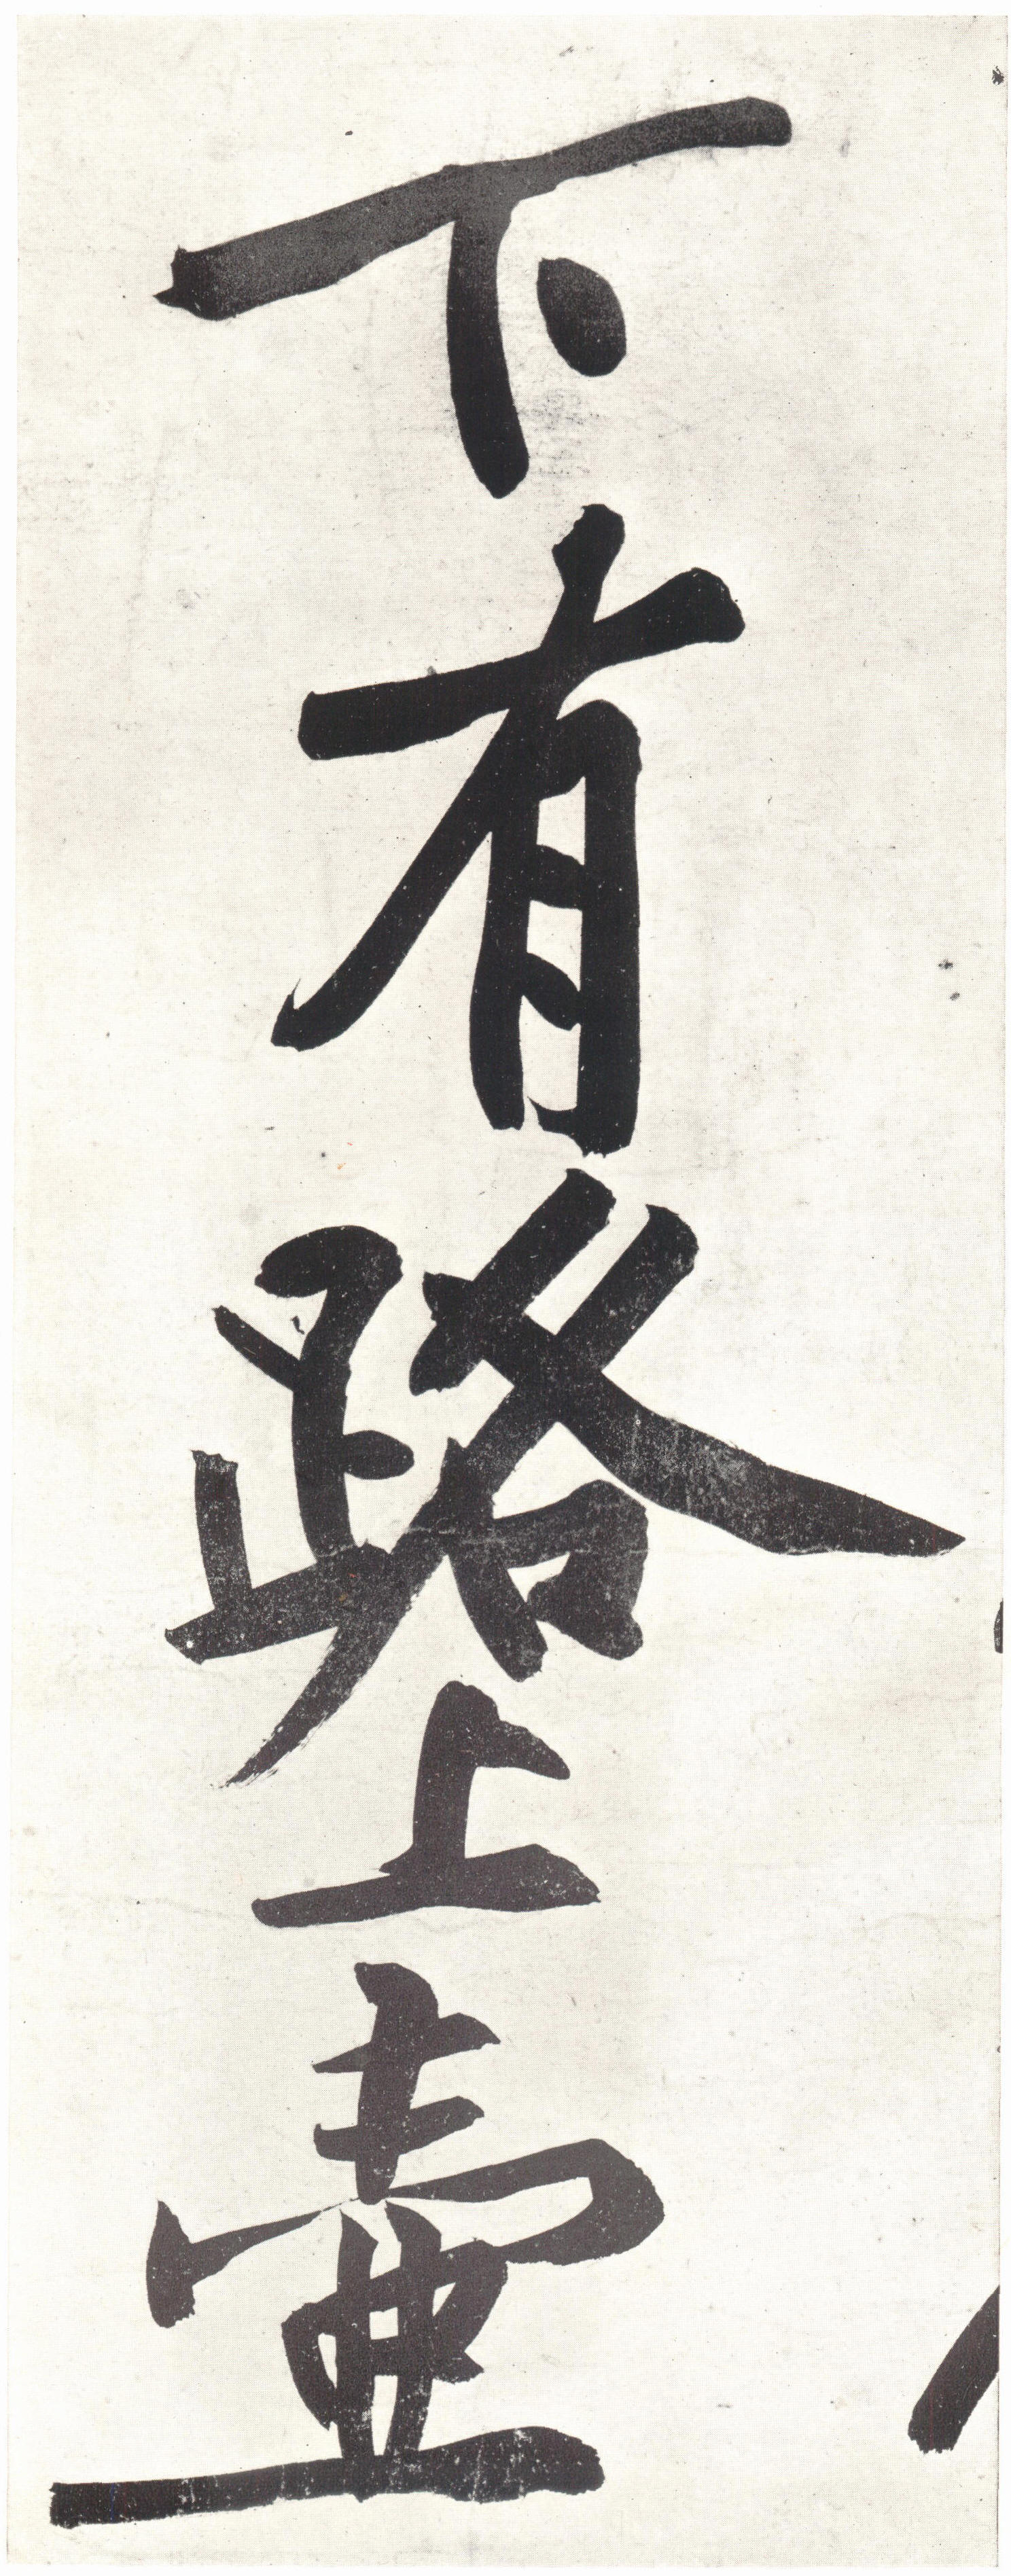 下有路上壺